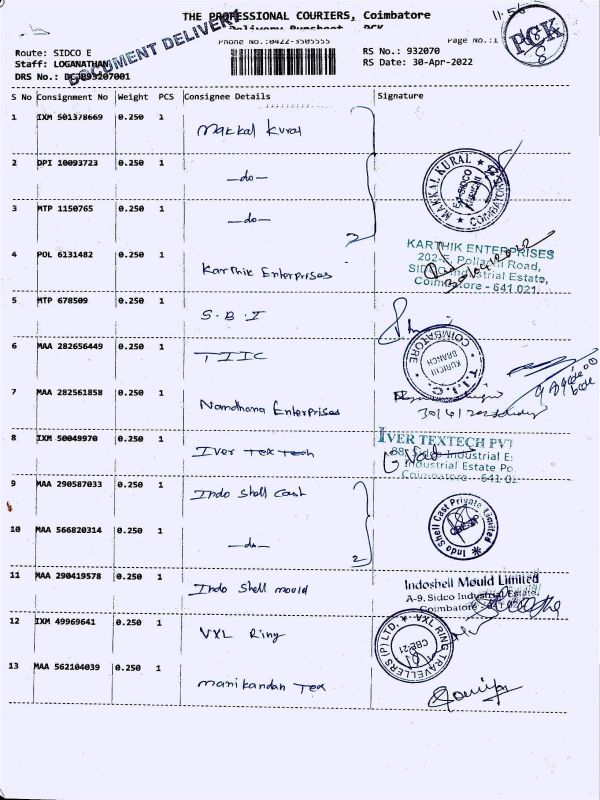 THE PROFESSIONAL COURIERS, Coimbatore
DOCUMENT DELIVERY
11-56
PCK
Phone No.:0422-3505555
Page No.:1
Route: SIDCO E
RS No.: 932070
Staff: LOGANATHAN
RS Date: 30-Apr-2022
DRS No.:
S No Consignment No Weight PCS Consignee Details Signature
1 IXM 501378669 0.250 1 Makkal Kural
2 DPI 10093723 0.250 1 —do—
MAKKAL KURAL ★ COIMBATORE ★
SIDCO
3 MTP 1150765 0.250 1 —do—
2
4 POL 6131482 0.250 1 Karthik Enterprises
KARTHIK ENTERPRISES
202-E, Pollachi Road,
SIDCO Industrial Estate,
Coimbatore - 641 021.
5 MTP 678509 0.250 1 S.B.I
6 MAA 282656449 0.250 1 TIIC
COIMBATORE ★ T.I.I.C. ★
KURICHI
BRANCH
7 MAA 282561858 0.250 1 Nandhana Enterprises
8 IXM 50049970 0.250 1 Iver Tex Tech
IVER TEXTECH PVT
Industrial Estate Po
Coimbatore - 641 0
9 MAA 290587033 0.250 1 Indo Shell Cast
Indo Shell Cast Private Limited
10 MAA 566820314 0.250 1 —do—
2
11 MAA 290419578 0.250 1 Indo Shell mould
Indoshell Mould Limited
A-9, Sidco Industrial Estate,
Coimbatore - 641 021
12 IXM 49969641 0.250 1 VXL Ring
VXL RING TRAVELLERS (P) LTD. ★
CBE-21
13 MAA 562104039 0.250 1 Manikandan Tex